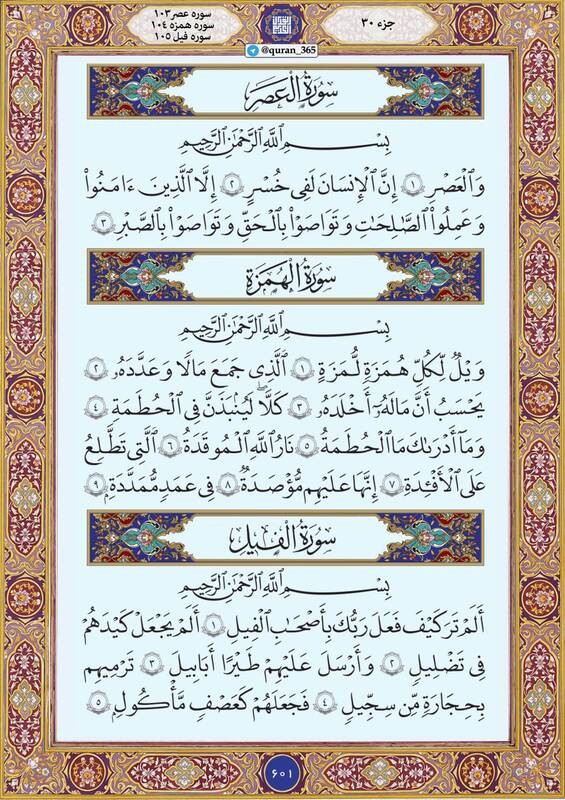 جزء ۳۰
سوره عصر ۱۰۳
سوره همزه ۱۰۴
سوره فیل ۱۰۵
@quran_365
سُورَةُ الْعَصْرِ
بِسْمِ اللَّهِ الرَّحْمَٰنِ الرَّحِيمِ
وَالْعَصْرِ ۱ إِنَّ الْإِنْسَانَ لَفِي خُسْرٍ ۲ إِلَّا الَّذِينَ ءَامَنُوا
وَعَمِلُوا الصَّالِحَاتِ وَتَوَاصَوْا بِالْحَقِّ وَتَوَاصَوْا بِالصَّبْرِ ۳
سُورَةُ الْهُمَزَةِ
بِسْمِ اللَّهِ الرَّحْمَٰنِ الرَّحِيمِ
وَيْلٌ لِكُلِّ هُمَزَةٍ لُمَزَةٍ ۱ الَّذِي جَمَعَ مَالًا وَعَدَّدَهُ ۲
يَحْسَبُ أَنَّ مَالَهُ أَخْلَدَهُ ۳ كَلَّا لَيُنْبَذَنَّ فِي الْحُطَمَةِ ۴
وَمَا أَدْرَاكَ مَا الْحُطَمَةُ ۵ نَارُ اللَّهِ الْمُوقَدَةُ ۶ الَّتِي تَطَّلِعُ
عَلَى الْأَفْئِدَةِ ۷ إِنَّهَا عَلَيْهِمْ مُؤْصَدَةٌ ۸ فِي عَمَدٍ مُمَدَّدَةٍ ۹
سُورَةُ الْفِيلِ
بِسْمِ اللَّهِ الرَّحْمَٰنِ الرَّحِيمِ
أَلَمْ تَرَ كَيْفَ فَعَلَ رَبُّكَ بِأَصْحَابِ الْفِيلِ ۱ أَلَمْ يَجْعَلْ كَيْدَهُمْ
فِي تَضْلِيلٍ ۲ وَأَرْسَلَ عَلَيْهِمْ طَيْرًا أَبَابِيلَ ۳ تَرْمِيهِمْ
بِحِجَارَةٍ مِنْ سِجِّيلٍ ۴ فَجَعَلَهُمْ كَعَصْفٍ مَأْكُولٍ ۵
۶۰۱